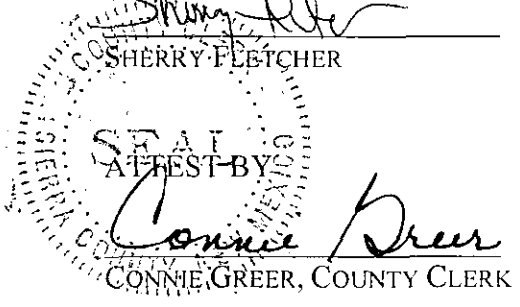 SHERRY FLETCHER
SEAL
ATTEST BY
Connie Greer
CONNIE GREER, COUNTY CLERK
SIERRA COUNTY
MEXICO